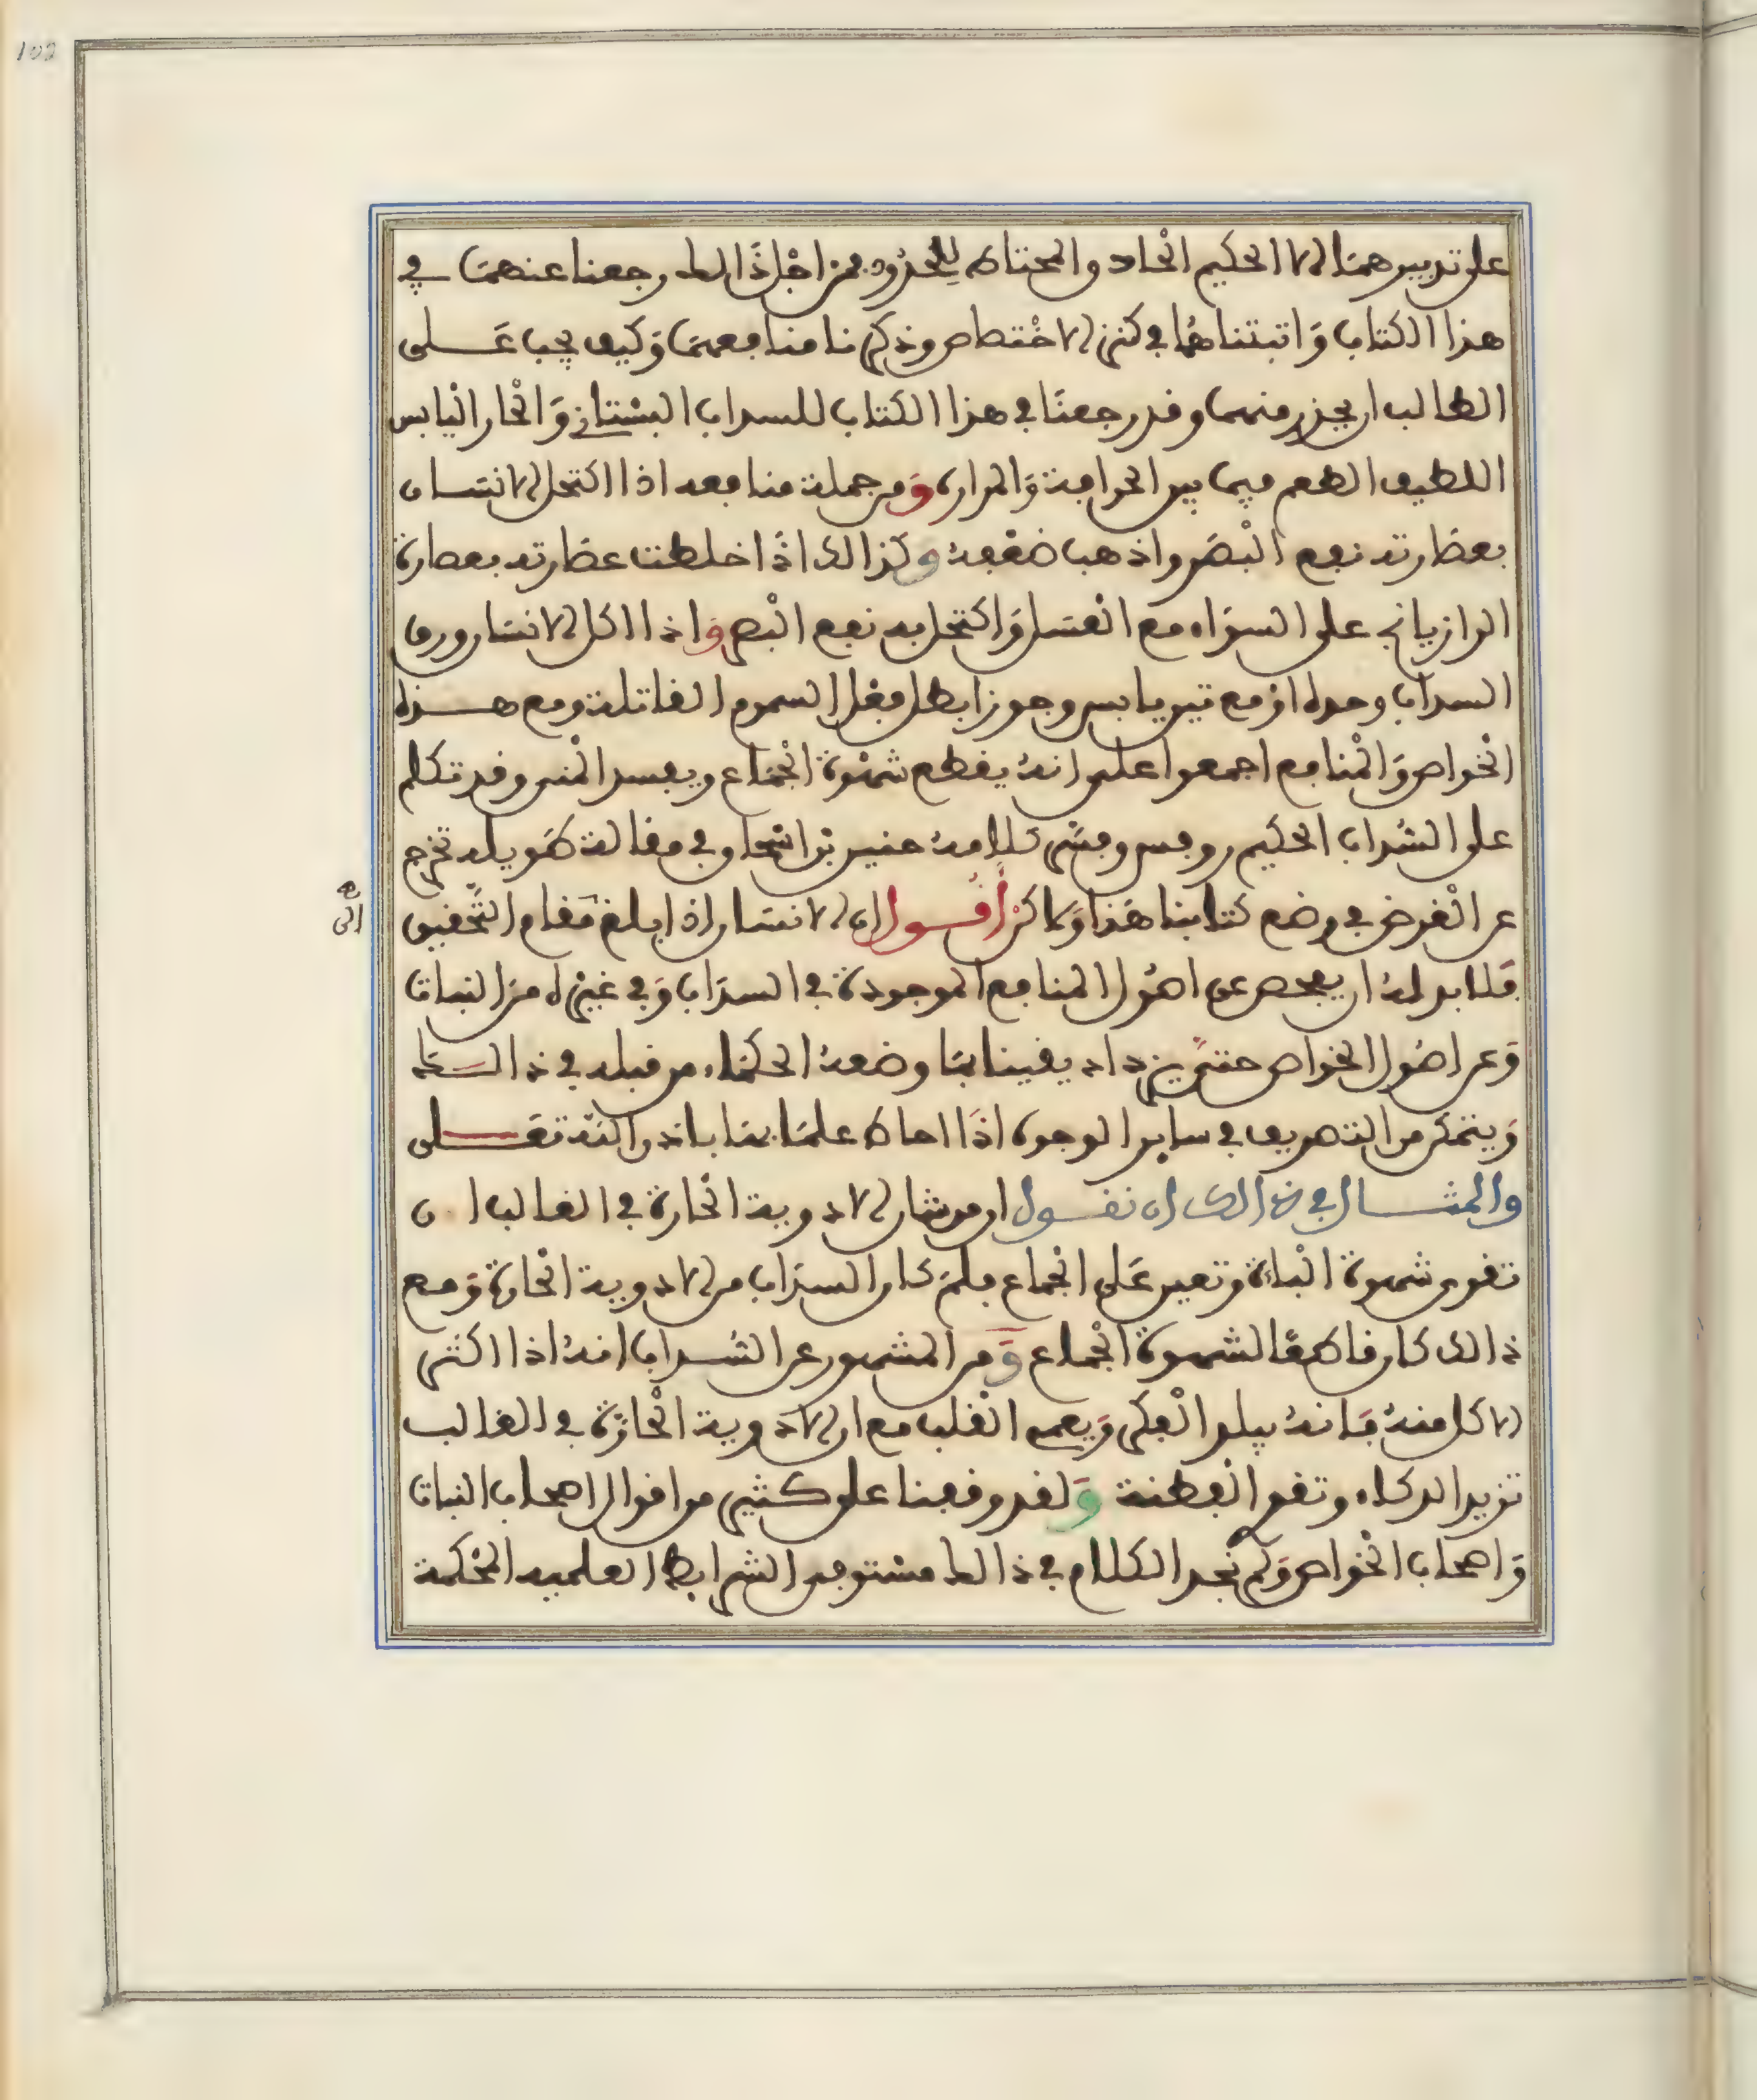 102
على تدبيرهما الا الحكيم الحاد والمحتاط للحدود. فمن اجل ذالك رجعنا عنهما في
هذا الكتاب وَاثبتناهُما في كنز الاختصاص وذكرنا منافعهما وَكيف يجب عَلى
الطالب ان يحذر منهما وقد رجعنَا في هذا الكتاب للسداب البستاني وَالحار اليابس
اللطيف الطعم فيما بين الحرافة وَالمرارة وَمن جملة منافعه اذا اكتحل الانسان
بعصارته نفع البصر واذهب ضعفه وكذالك اذا خلطت عصارته بعصارة
الرازيانج على السواء مع العسل وَاكتحل به نفع البصر وَاذا اكل الانسان ورق
السداب وحده او مع تين يابس وجوز ابطل فعل السموم القاتلة ومع هذه
الخواص وَالمنافع اجمعوا على انه يقطع شهوة الجماع ويفسد المني وقد تكلم
على السداب الحكيم روفس وفسر كلامه حنين بن اسحاق في مقالة طويلة تخرج
عن الغرض في وضع كتابنا هَذا وَلاكن أقول ان الانسان اذا بلغ مقام التحقيق
فلا بد له ان يفحص عن اصُول المنافع الموجودة في السداب وَفي غيره من النبات
وَعن اصُول الخواص حتى يزداد يقينا بمَا وضعه الحكماء من قبله في ذالك
وَيتمكن من التصريف في ساير الوجوه اذا احاط علمَا بهَا باذن الله تعلى
والمثال في ذالك ان نقول ان من شان الادوية الحارة في الغالب ان
تقوى شهوة الباءة وتعين عَلى الجماع فلم كان السداب من الادوية الحارة وَمع
ذالك كان قاطعًا لشهوة الجماع وَمن المشهور عن السداب انه اذا اكثر
الاكل منه فَانه يبلد الفكر وَيعمى القلب مع ان الادوية الحارة في الغالب
تزيد الذكاء وتقو الفطنة وَلقد وقفنا على كثير من اقوال اصحاب النبات
وَاصحاب الخواص وَلم نجد الكلام في ذالك مستوفى الشرايط العلمية المحكمة